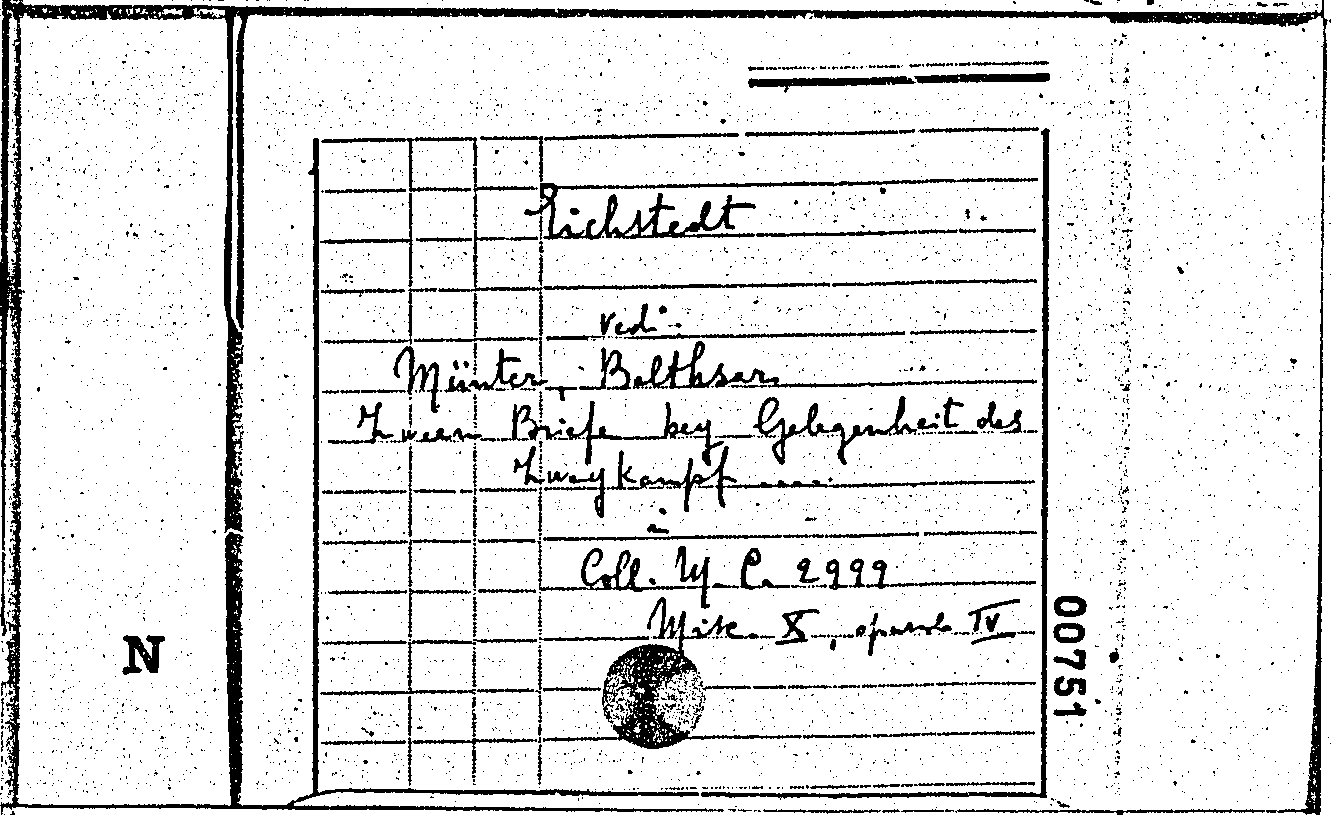 Eichstedt
vedi
Münter, Balthsar.
Zween Briefe bey Gelegenheit des
Zweykampf .....
in
Coll. M. P. 2999
Misc. X, opuscolo IV
N
00751